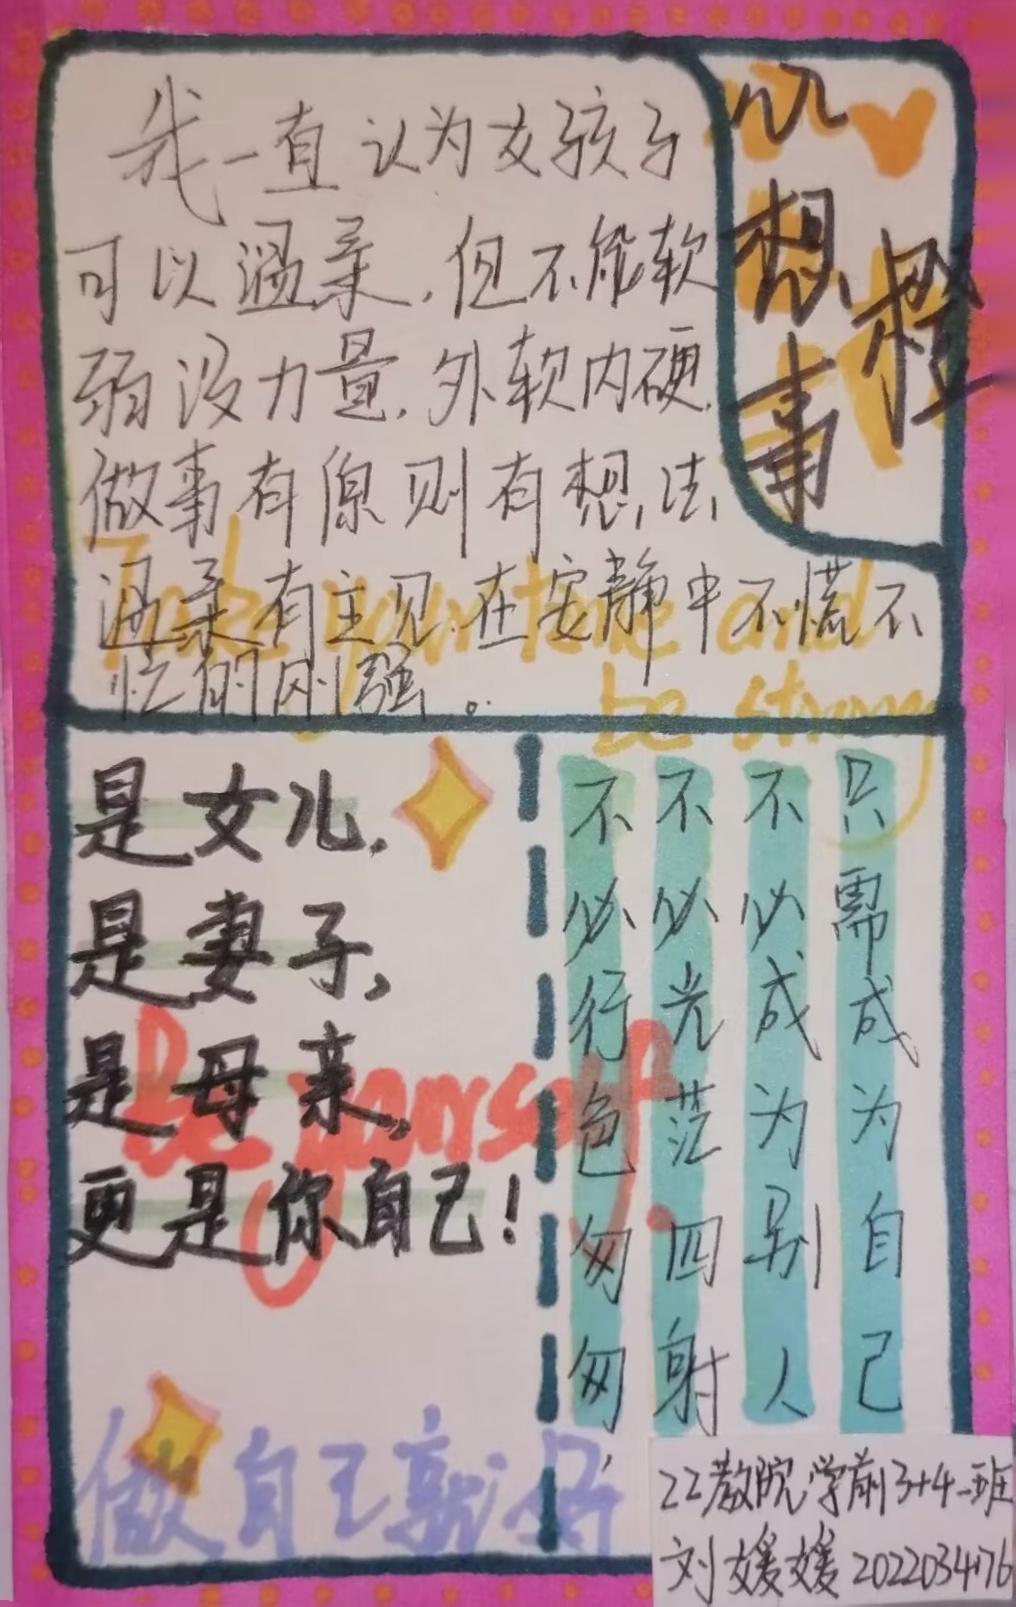 我一直认为女孩子
可以温柔,但不能软
弱没力量,外软内硬,
做事有原则有想法,
温柔有主见,在安静中不慌不
忙的刚强。
心想事橙
Take your time and
be strong
是女儿,
是妻子,
是母亲,
更是你自己!
Be yourself.
不必行色匆匆,
不必光茫四射
不必成为别人
只需成为自己
做自己就好
22教院学前3+4二班
刘媛媛 2022034176